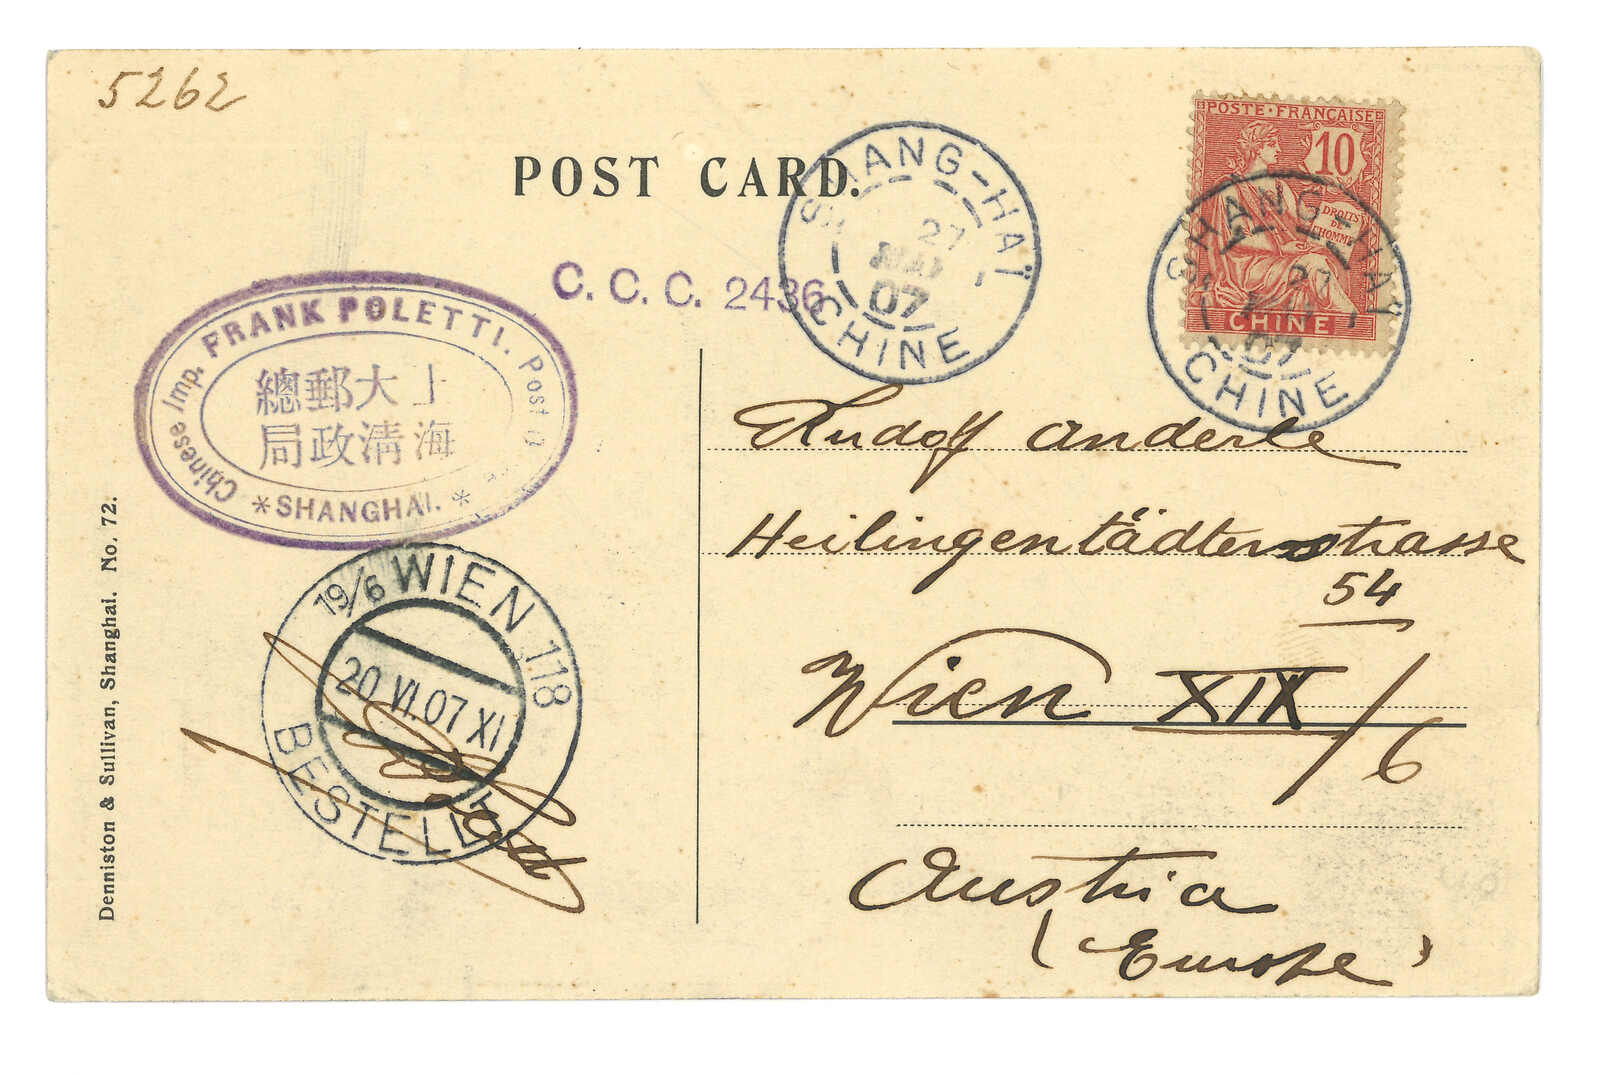 5262
POST CARD.
C. C. C. 2436
SHANG-HAÏ
27
07
CHINE
POSTE FRANÇAISE
10
DROITS
DE
L'HOMME
CHINE
SHANG-HAÏ
27
07
CHINE
FRANK POLETTI.
Chinese Imp. Post
上大郵總
海清政局
* SHANGHAI. *
Rudolf Anderle
Heilingenstädterstrasse
54
Wien XIX/6
Austria
(Europe)
19/6 WIEN 118
20 VI.07 XI
BESTELLT
Denniston & Sullivan, Shanghai. No. 72.